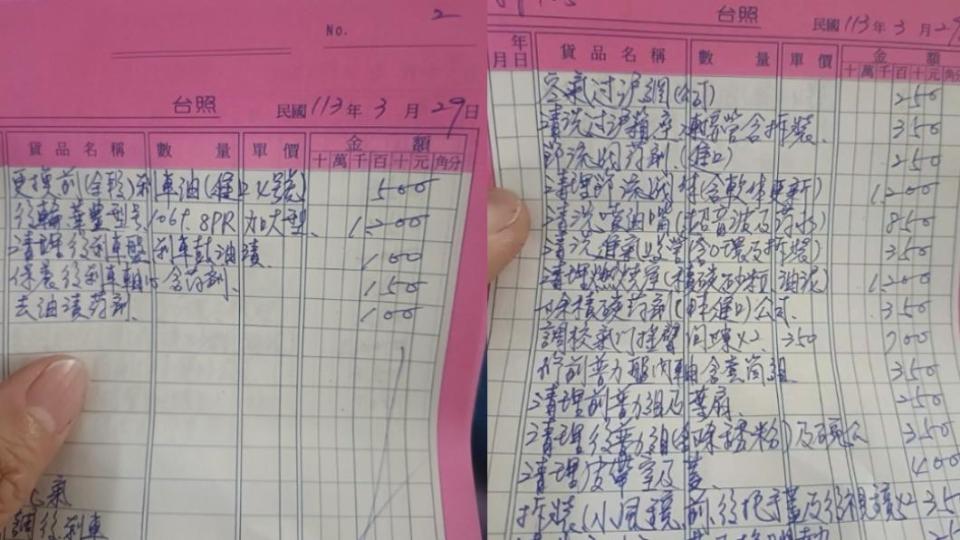 No. 2
台照
民國113年3月29日
貨品名稱 數量 單價 金額
十萬千百十元角分
更換前(含軟)剎車油(進口4號) 500
後輪.華豐型號/106P.8PR加大型. 1,200
清理後剎車盤.剎車鼓油漬. 100
保養後剎車軸心含药剂. 150
去油漬药剂. 100
气氣
調後剎車
台照
民國113年3月29
年月日 貨品名稱 數量 單價 金額
十萬千百十元角分
空氣过滤網(公司) 250
清洗过滤箱座.含拆裝. 350
節流閥药剂.(進口) 250
清理節流閥体(含軟体更新) 1,200
清洗噴油嘴(超音波及药水) 850
清洗進氣歧管含O環及拆裝) 350
清理燃烧室(積碳.砂粒.油泥) 1,200
除積碳药剂(進口)公司. 350
調校氣門搖臂间隙x2 350 700
前普力盤内軸含套筒組 350
清理前普力組及葉扇. 250
清理後普力組(除鏽粉)及碗公 350
清理皮帶室及蓋. 400
拆裝(小風鏡.前.後把手蓋及後視鏡x2 35